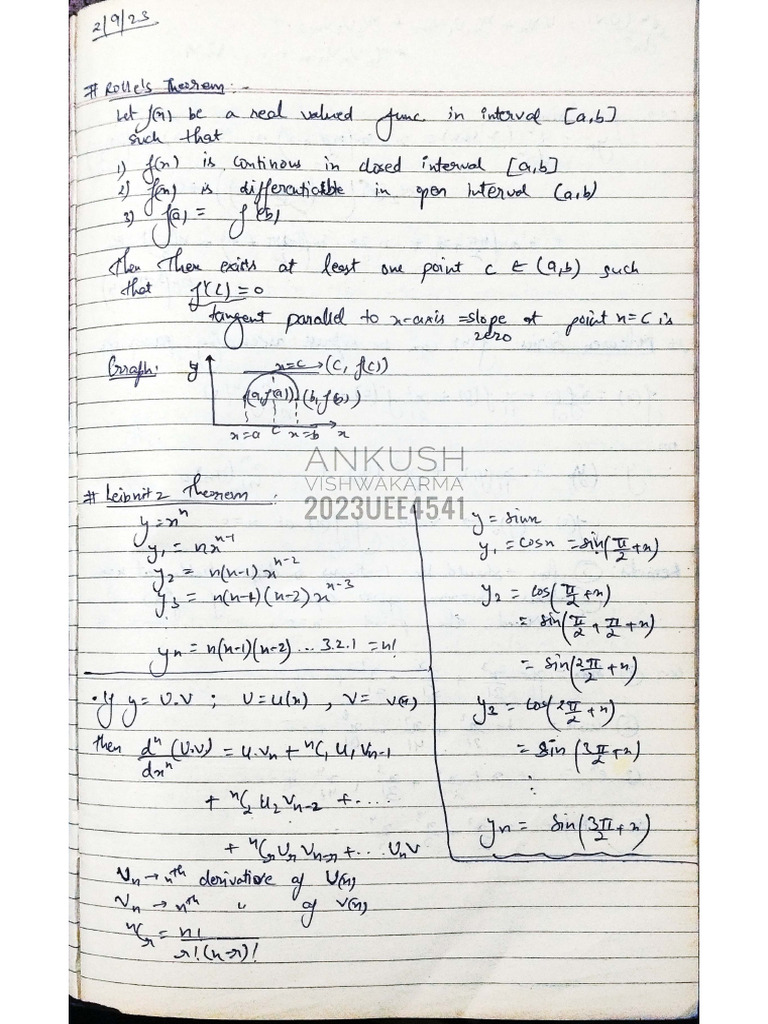 2/9/23
# Rolle's Theorem :-
Let f(x) be a real valued func in interval [a,b]
such that
1) f(x) is continous in closed interval [a,b]
2) f(x) is differentiable in open interval (a,b)
3) f(a) = f(b)
then there exists at least one point c ∈ (a,b) such
that f'(c) = 0
tangent parallel to x-axis = slope at point x = c is
zero
Graph: y x=c → (c, f(c))
(a, f(a)) (b, f(b))
x=a c x=b x
ANKUSH
VISHWAKARMA
2023UEE4541
# Leibnitz Theorem :
y = xⁿ
y₁ = nxⁿ⁻¹
y₂ = n(n-1) xⁿ⁻²
y₃ = n(n-1)(n-2) xⁿ⁻³
yn = n(n-1)(n-2) ... 3.2.1 = n!
y = sinx
y₁ = cosx = sin(π/2 + x)
y₂ = cos(π/2 + x)
= sin(π/2 + π/2 + x)
= sin(2π/2 + x)
y₃ = cos(2π/2 + x)
= sin(3π/2 + x)
⋮
yn = sin(3π/2 + x)
• If y = U.V ; U = u(x) , V = v(x)
then dⁿ/dxⁿ (U.V) = U.Vn + ⁿC₁ U₁ Vn-1
+ ⁿC₂ U₂ Vn-2 + ....
+ ⁿCr Ur Vn-r + ... Un V
Un → nth derivative of U(x)
Vn → nth " of V(x)
ⁿCr = n!/r!(n-r)!